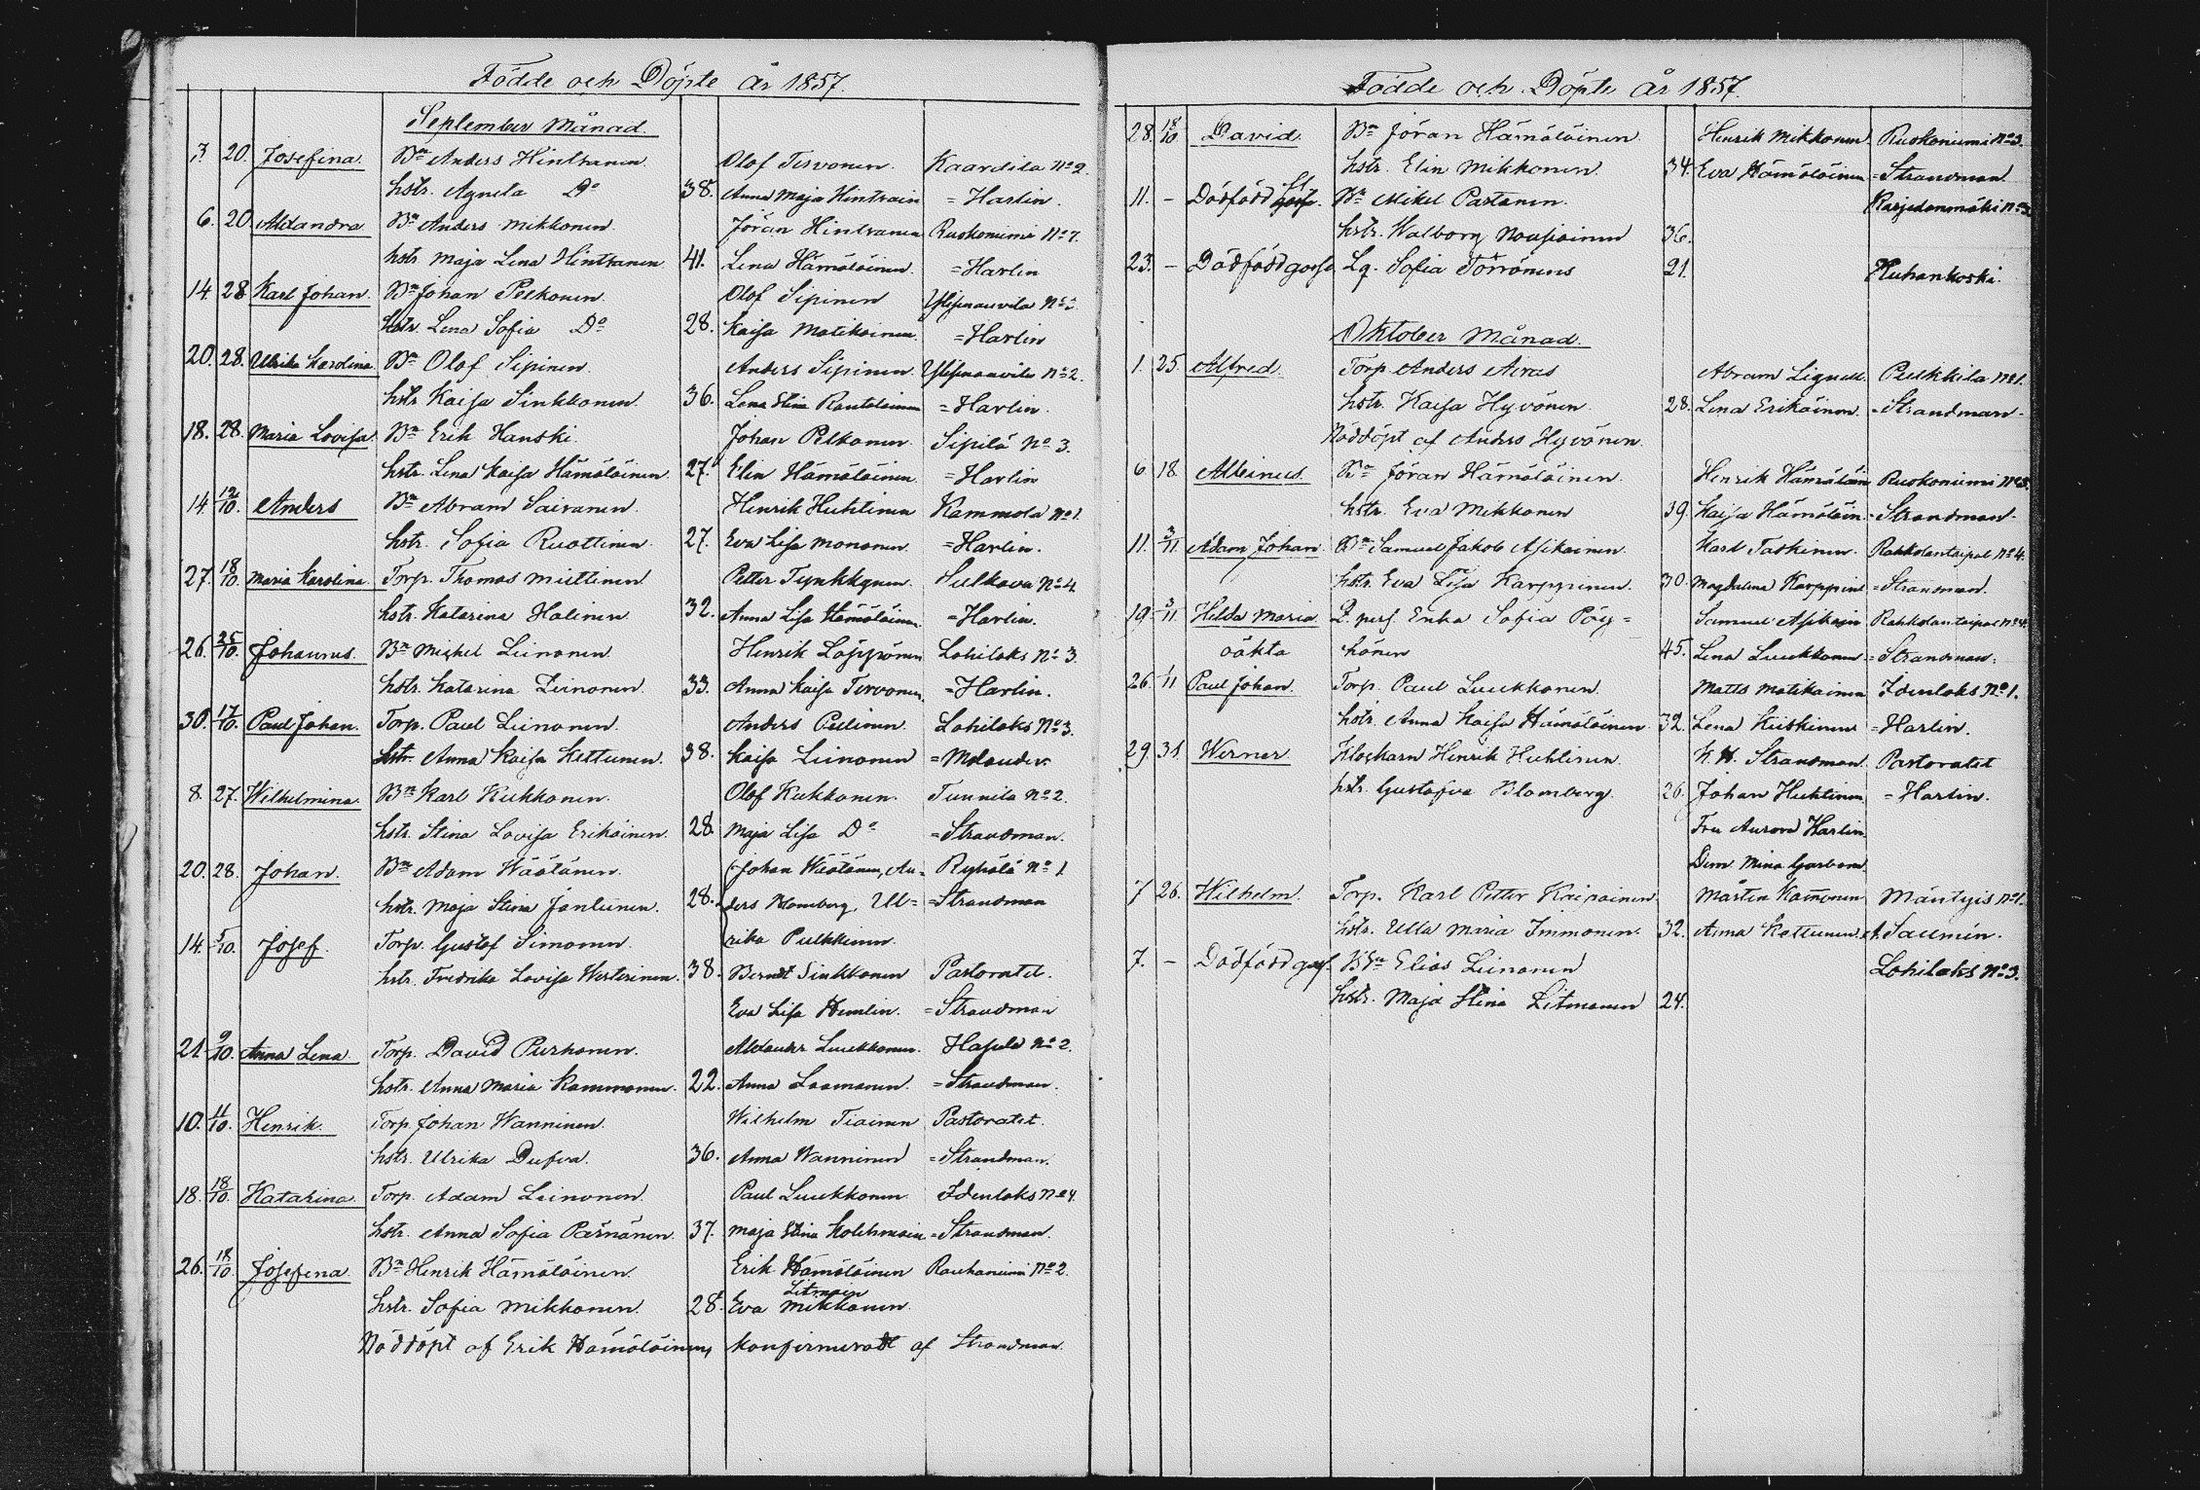 Födde och Döpte år 1857.
September Månad.
3. 20. Josefina. Bn Anders Hintsanen Olof Tervonen. Kaartila No 2.
hstr. Agneta Do 38. Anna Maja Hintsain = Harlin.
6. 20 Alexandra Bn Anders Mikkonen Jöran Hintsanen Ruokoniemi No 7.
hstr Maja Lena Hintsanen 41. Lena Hämäläinen. = Harlin
14. 28 Karl Johan. Bn Johan Pelkonen. Olof Sipinen
hstr. Lena Sofia Do 28. Kaisa Matikainen. = Harlin
20. 28. Ulrika Karolina. Bn Olof Sipinen. Anders Sipinen. No 2.
hstr Kaisa Sinkkonen 36. Lena Stina Rautalainen = Harlin.
18. 28. Maria Lovisa Bn Erik Hanski. Johan Pelkonen. Sipilä No 3.
hstr. Lena Kaisa Hämäläinen. 27. Elin Hämäläinen. = Harlin
14. 12/10. Anders Bn Abram Sairanen. Henrik Huhtinen Kammola No 1.
hstr. Sofia Ruottinen 27. Eva Lisa Mononen. = Harlin.
27. 18/10. Maria Karolina. Torp. Thomas Miettinen Petter Tynkkynen. Sulkava No 4.
hstr. Katarina Halinen 32. Anna Lisa Hämäläinen = Harlin.
26. 25/10. Johannes. Bn Mickel Leinonen. Henrik Löppönen Lohilaks No 3.
hstr. Katarina Leinonen. 33. Anna Kaisa Tervonen. = Harlin.
30. 17/10. Paul Johan. Torp. Paul Leinonen. Anders Pellinen. Lohilaks No 3.
hstr. Anna Kaisa Kettunen. 38. Kaisa Leinonen = Melander
8. 27. Wilhelmina. Bn Karl Kukkonen. Olof Kukkonen. Tunnila No 2.
hstr. Stina Lovisa Erikäinen. 28. Maja Lisa Do = Strandman.
20. 28. Johan. Bn Adam Wäätänen. Johan Wäätänen, An- Ryhälä No 1
hstr. Maja Stina Jantunen. 28. ders Blomberg, Ul= = Strandman
14. 5/10. Josef. Torp. Gustaf Simonen. rika Pulkkinen.
hstr. Fredrika Lovisa Westerinen. 38. Berndt Sinkkonen Pastoratet.
Eva Lisa Hemlin. = Strandman
21. 9/10. Anna Lena. Torp. David Purhonen. Alexander Luukkonen. No 2.
hstr. Anna Maria Kammonen. 22. Anna Laamanen. = Strandman.
10. 11/10. Henrik. Torp Johan Wanninen. Wilhelm Tiainen Pastoratet.
hstr. Ulrika Dufva. 36. Anna Wanninen = Strandman.
18. 18/10. Katarina. Torp. Adam Leinonen. Paul Luukkonen Idenlaks No 4.
hstr. Anna Sofia Parnanen. 37. Maja Stina Kolehmain = Strandman.
26. 18/10. Josefina. Bn Henrik Hämäläinen. Erik Hämäläinen Rauhaniemi No 2.
Litmain
hstr. Sofia Mikkonen. 28. Eva Mikkonen.
Nöddöpt af Erik Hämäläinen, konfirmeradt af Strandman.
Födde och Döpte år 1857.
28. 18/10 David. Bn Jöran Hämäläinen. Henrik Mikkonen. Ruokoniemi No 3.
hstr. Elin Mikkonen. 34. Eva Hämäläinen = Strandman.
11. - Dödfödd Bn Mikel Partanen. No 3.
hstr. Walborg Nousiainen 36.
23. - Dödfödd gosse Lq. Sofia Törrönens 21. Kuhankoski.
Oktober Månad.
1. 25. Alfred. Torp Anders Airas Abram Lignell. Pulkkila No 1.
hstr. Kaisa Hyvönen. 28. Lena Erikäinen. = Strandman.
Nöddöpt af Anders Hyvönen.
6. 18. Albinus. Bn Jöran Hämäläinen. Henrik Hämäläin Ruokoniemi No 3.
hstr. Eva Mikkonen 39. Kaisa Hämäläin = Strandman.
11. 3/11 Adam Johan. Bn Samuel Jakob Asikainen. Karl Taskinen. Rakkolantaipal No 4.
hstr. Eva Lisa Karppinen. 30. Magdalena Karppine = Strandman.
19. 3/11 Hilda Maria. Q. pers. Enka Sofia Pöy= Samuel Asikain Rakkolantaipal No 4.
oäkta hönen 45. Lena Luukkonen. = Strandman.
26. 1/11 Paul Johan. Torp. Paul Luukkonen. Matts Matikainen Idenlaks No 1.
hstr. Anna Kaisa Hämäläinen. 32. Lena Kiiskinen = Harlin.
29. 31. Werner Klockarn Henrik Huhtinen K. H. Strandman. Pastoratet
hstr. Gustafva Blomberg. 26. Johan Huhtinen, = Harlin.
Fru Aurora Harlin.
Dem. Mina
7 26. Wilhelm. Torp. Karl Petter Kaipainen Mårten Kammonen Mäntyis No 1.
hstr. Ulla Maria Immonen. 32. Anna Kettunen. A. Saxmin.
7. - Dödfödd goss. Elias Leinonen Lohilaks No 3.
hstr. Maja Stina Litmanen 24.